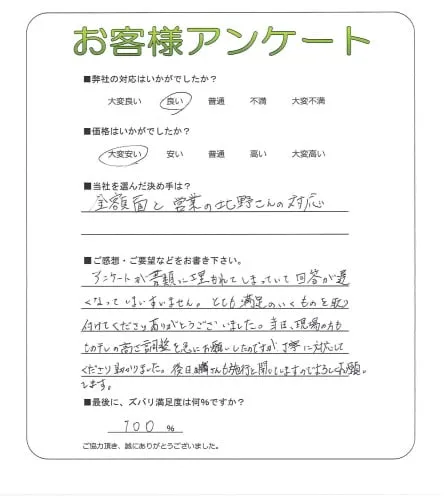 お客様アンケート
■弊社の対応はいかがでしたか？
大変良い 良い 普通 不満 大変不満
■価格はいかがでしたか？
大変安い 安い 普通 高い 大変高い
■当社を選んだ決め手は？
金額面と営業の北野さんの対応
■ご感想・ご要望などをお書き下さい。
アンケートが書類に埋もれてしまっていて回答が遅
くなってしまいすいません。とても満足のいくものを取り
付けてくださりありがとうございました。当日、現場の方も
の高さ調整を急にお願いしたのですが丁寧に対応して
くださり助かりました。後日 さんも施行と聞いてますのでよろしくお願い
します。
■最後に、ズバリ満足度は何％ですか？
100 ％
ご協力頂き、誠にありがとうございました。